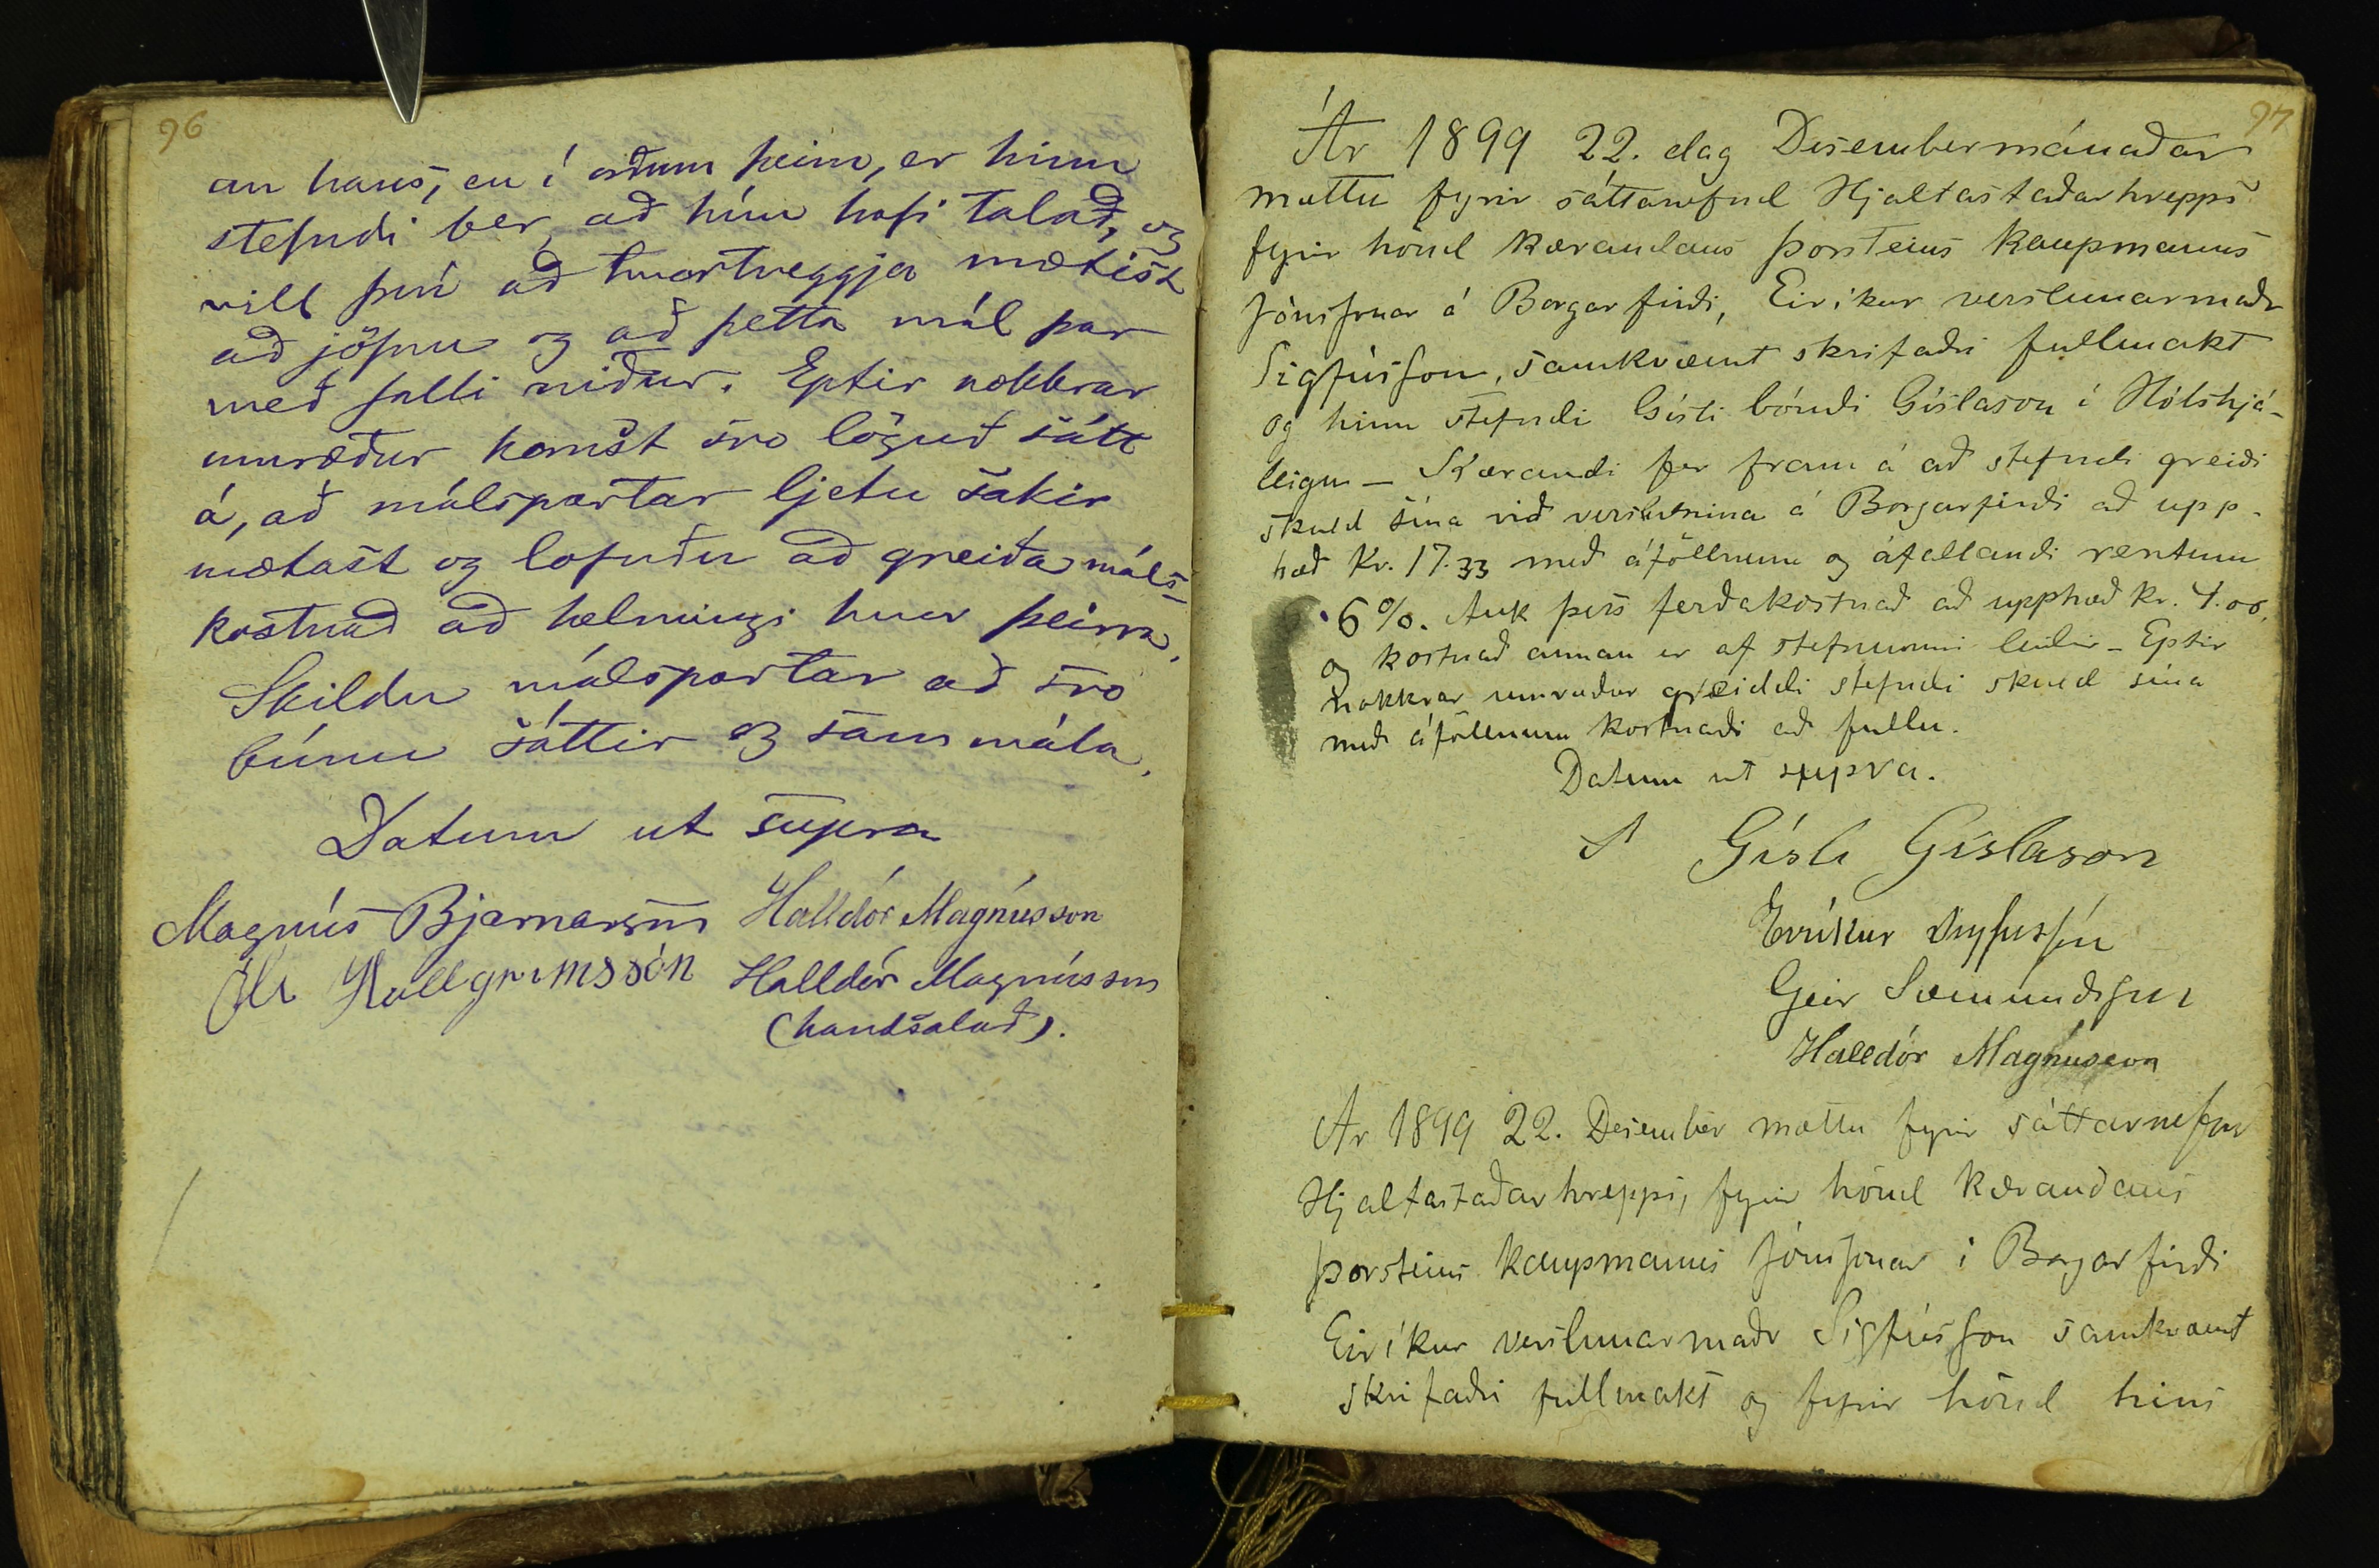 96
an hans, en í orðum þeim, er hinn
stefndi ber, að hún hafi talað, og
vill því að hvortveggja mætist
að jöfnu og að þetta mál þar
með falli niður. Eptir nokkrar
umræður komst svo löguð sátt
á, að málspartar ljetu sakir
mætast og lofuðu að greiða máls-
kostnað að helmingi hver þeirra.
Skildu málspartar að svo
búnu sáttir og sammála.
Datum ut supra
Magnús Bjarnarson Halldór Magnússon
Óli Hallgrímsson Halldór Magnússon
(handsalað).
97
Ár 1899 22. dag Desembermánaðar
mættu fyrir sáttanefnd Hjaltastaðarhrepps
fyrir hönd kærandans Þorsteins kaupmanns
Jónssonar á Borgarfirði, Eiríkur verslunarmaðr
Sigfússon, samkvæmt skrifaðri fullmakt
og hinn stefndi Gísli bóndi Gíslason í Hólshjá-
leigu – Kærandi fer fram á að stefndi greiði
skuld sína við verslunina á Borgarfirði að upp-
hæð Kr. 17.33 með áföllnum og áfallandi rentum
6%. Auk þess ferðakostnað að upphæð kr. 4.00,
og kostnað annan er af stefnunni leiðir – Eptir
nokkrar umræður greiddi stefndi skuld sína
með áföllnum kostnaði að fullu.
Datum ut supra.
Gísli Gíslason
Eiríkur Sigfússon
Geir Sæmundsson
Halldór Magnússon
Ár 1899 22. Desember mættu fyrir sáttarnefnd
Hjaltastaðarhrepps, fyrir hönd kærandans
Þorsteins kaupmanns Jónssonar í Borgarfirði
Eiríkur verslunarmaðr Sigfússon samkvæmt
skrifaðri fullmakt og fyrir hönd hins